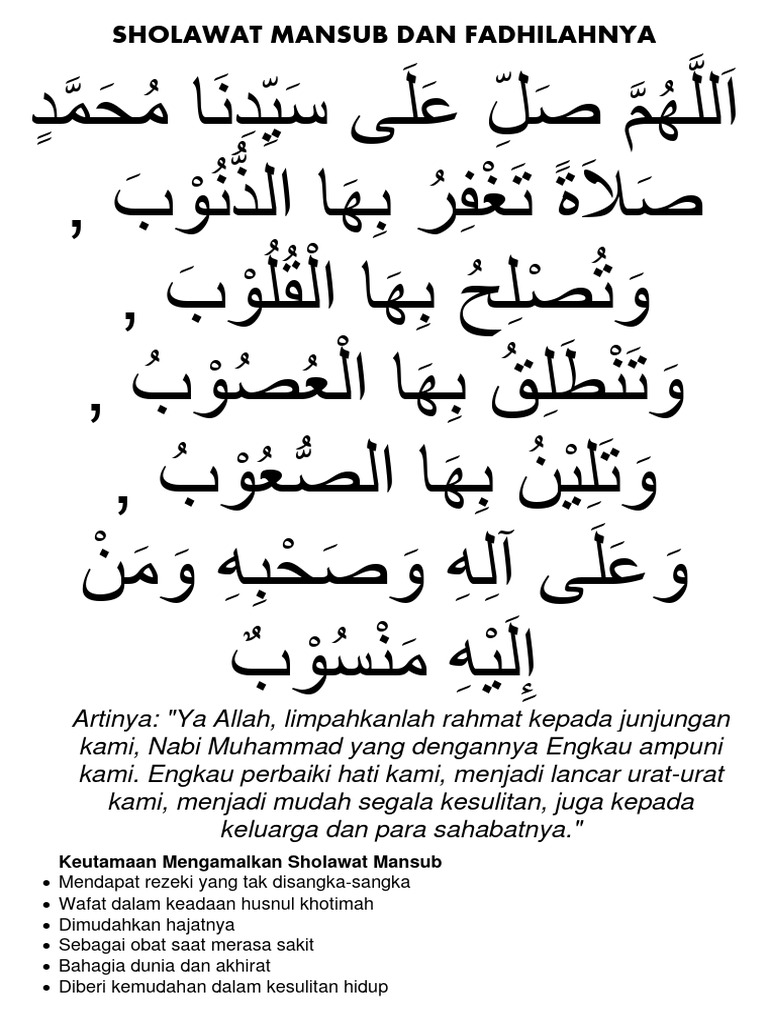 SHOLAWAT MANSUB DAN FADHILAHNYA
اَللَّهُمَّ صَلِّ عَلَى سَيِّدِنَا مُحَمَّدٍ
صَلَاَةً تَغْفِرُ بِهَا الذُّنُوْبَ ,
وَتُصْلِحُ بِهَا الْقُلُوْبَ ,
وَتَنْطَلِقُ بِهَا الْعُصُوْبُ ,
وَتَلِيْنُ بِهَا الصُّعُوْبُ ,
وَعَلَى آلِهِ وَصَحْبِهِ وَمَنْ
إِلَيْهِ مَنْسُوْبٌ
Artinya: "Ya Allah, limpahkanlah rahmat kepada junjungan
kami, Nabi Muhammad yang dengannya Engkau ampuni
kami. Engkau perbaiki hati kami, menjadi lancar urat-urat
kami, menjadi mudah segala kesulitan, juga kepada
keluarga dan para sahabatnya."
Keutamaan Mengamalkan Sholawat Mansub
• Mendapat rezeki yang tak disangka-sangka
• Wafat dalam keadaan husnul khotimah
• Dimudahkan hajatnya
• Sebagai obat saat merasa sakit
• Bahagia dunia dan akhirat
• Diberi kemudahan dalam kesulitan hidup